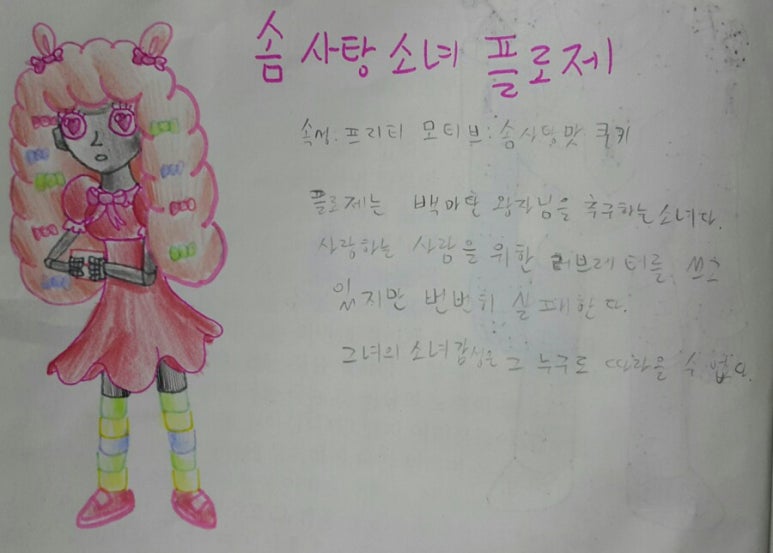 솜사탕소녀 플로제
속성. 프리티 모티브: 솜사탕맛 쿠키
플로제는 백마탄 왕자님을 추구하는 소녀다.
사랑하는 사람을 위한 러브레터를 쓰고
있지만 번번히 실패한다.
그녀의 소녀감성은 그 누구도 따라올 수 없다.